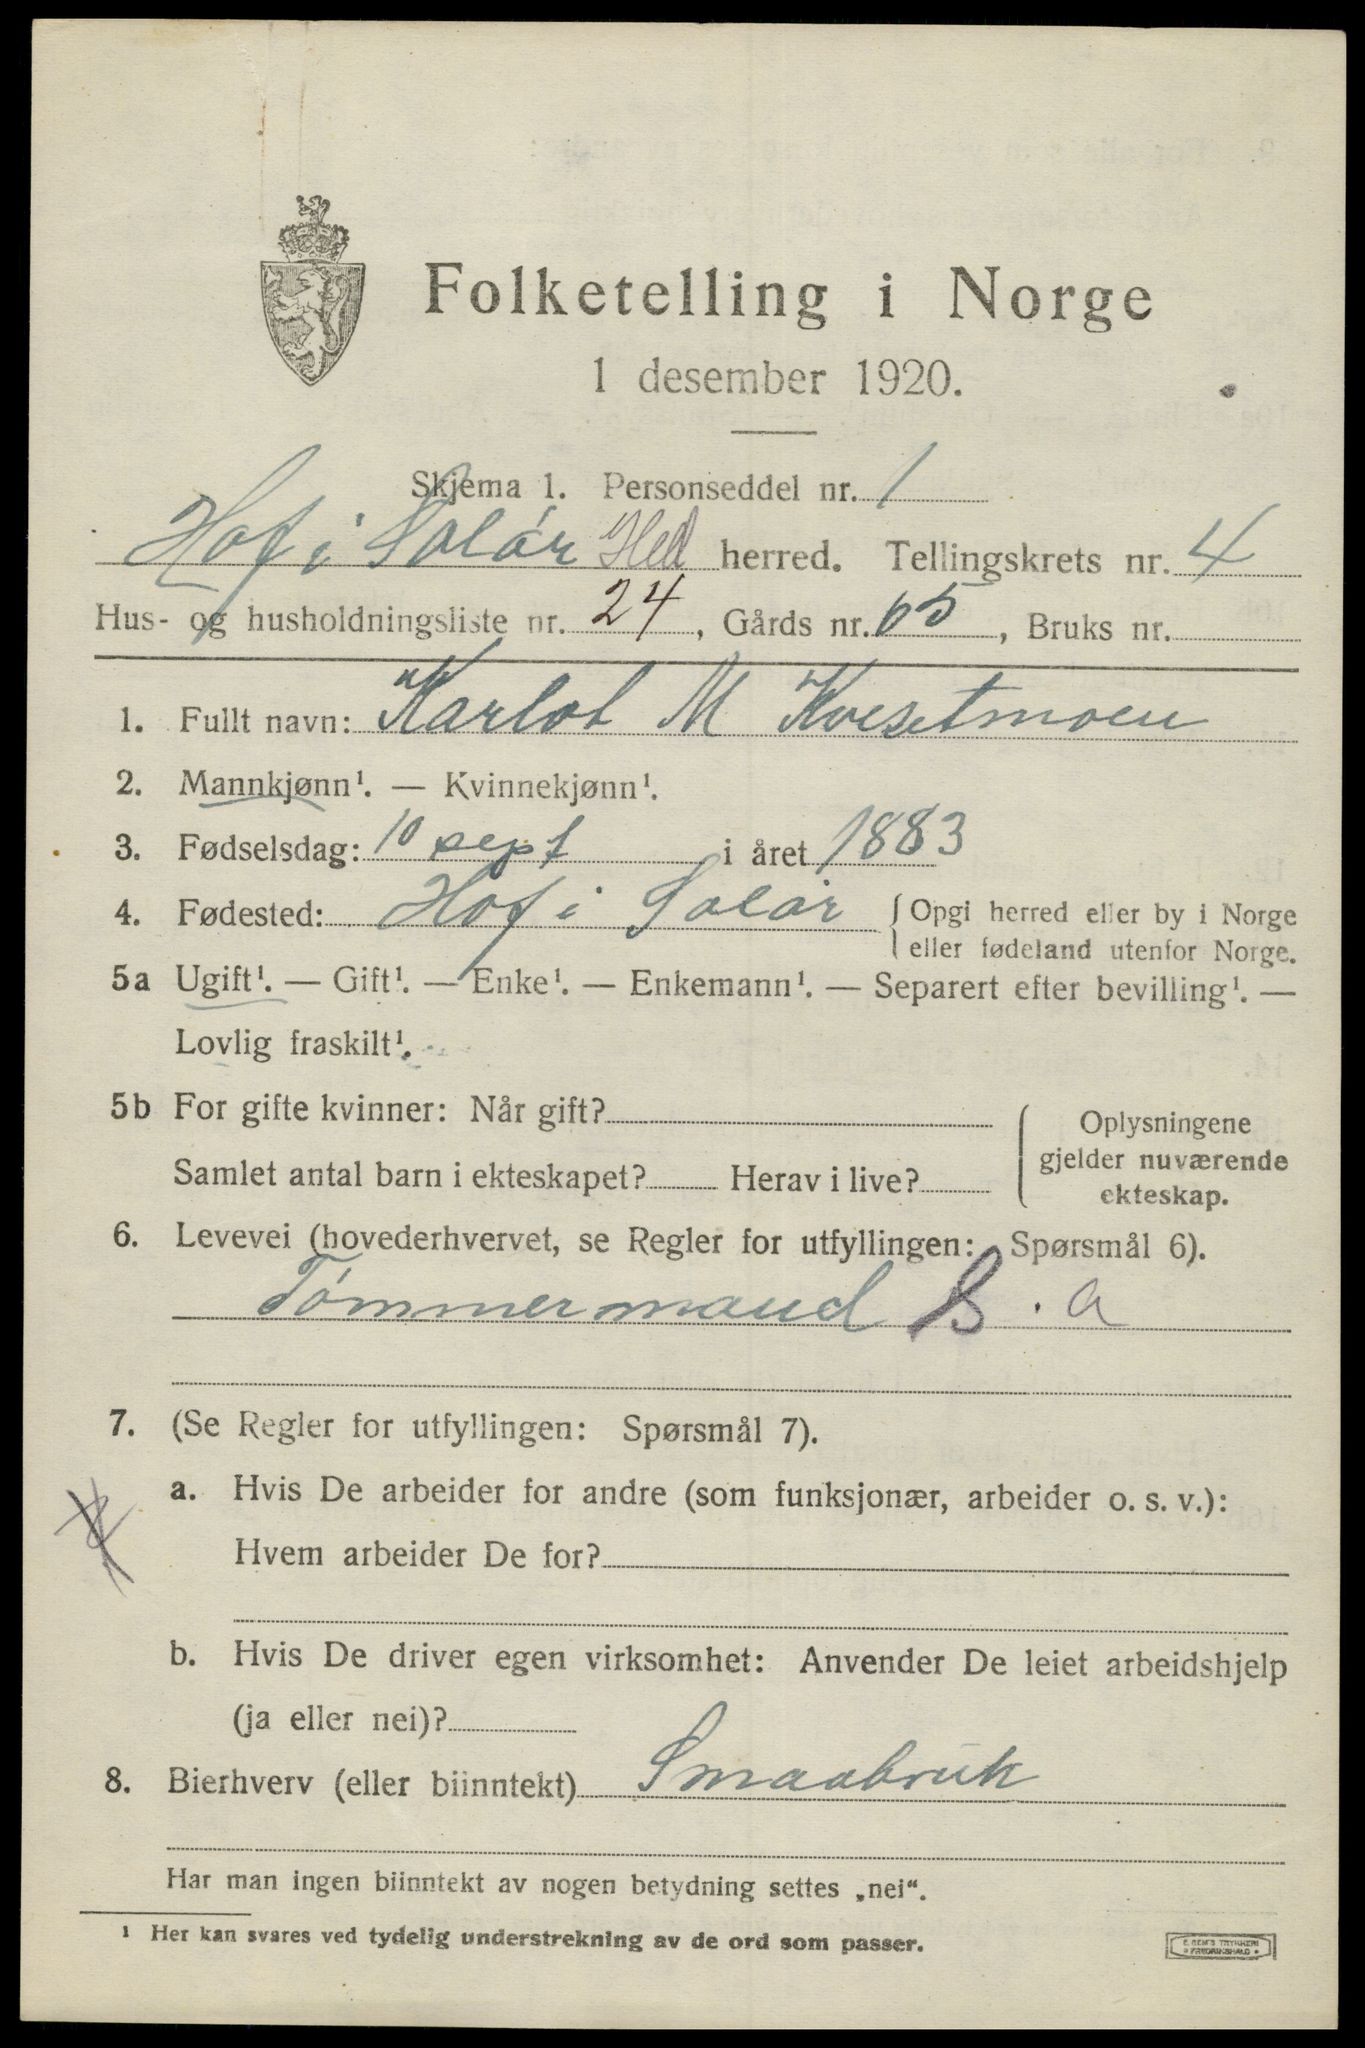 Folketelling i Norge
1 desember 1920.
Skjema 1. Personseddel nr. 1
Hof i Solör Hed herred. Tellingskrets nr. 4
Hus- og husholdningsliste nr. 24, Gårds nr. 65, Bruks nr.
1. Fullt navn: Karlot M Kvesetmoen
2. Mannkjønn¹. — Kvinnekjønn¹.
3. Fødselsdag: 10 sept i året 1883
4. Fødested: Hof i Solör { Opgi herred eller by i Norge
eller fødeland utenfor Norge.
5a Ugift¹. — Gift¹. — Enke¹. — Enkemann¹. — Separert efter bevilling¹. —
Lovlig fraskilt¹.
5b For gifte kvinner: Når gift?
Samlet antal barn i ekteskapet? Herav i live?
{ Oplysningene
gjelder nuværende
ekteskap.
6. Levevei (hovederhvervet, se Regler for utfyllingen: Spørsmål 6).
Tömmermand a
7. (Se Regler for utfyllingen: Spørsmål 7).
a. Hvis De arbeider for andre (som funksjonær, arbeider o. s. v.):
Hvem arbeider De for?
b. Hvis De driver egen virksomhet: Anvender De leiet arbeidshjelp
(ja eller nei)?
8. Bierhverv (eller biinntekt) Smaabruk
Har man ingen biinntekt av nogen betydning settes „nei“.
¹ Her kan svares ved tydelig understrekning av de ord som passer.
E. SEM'S TRYKKERI
FREDRIKSHALD